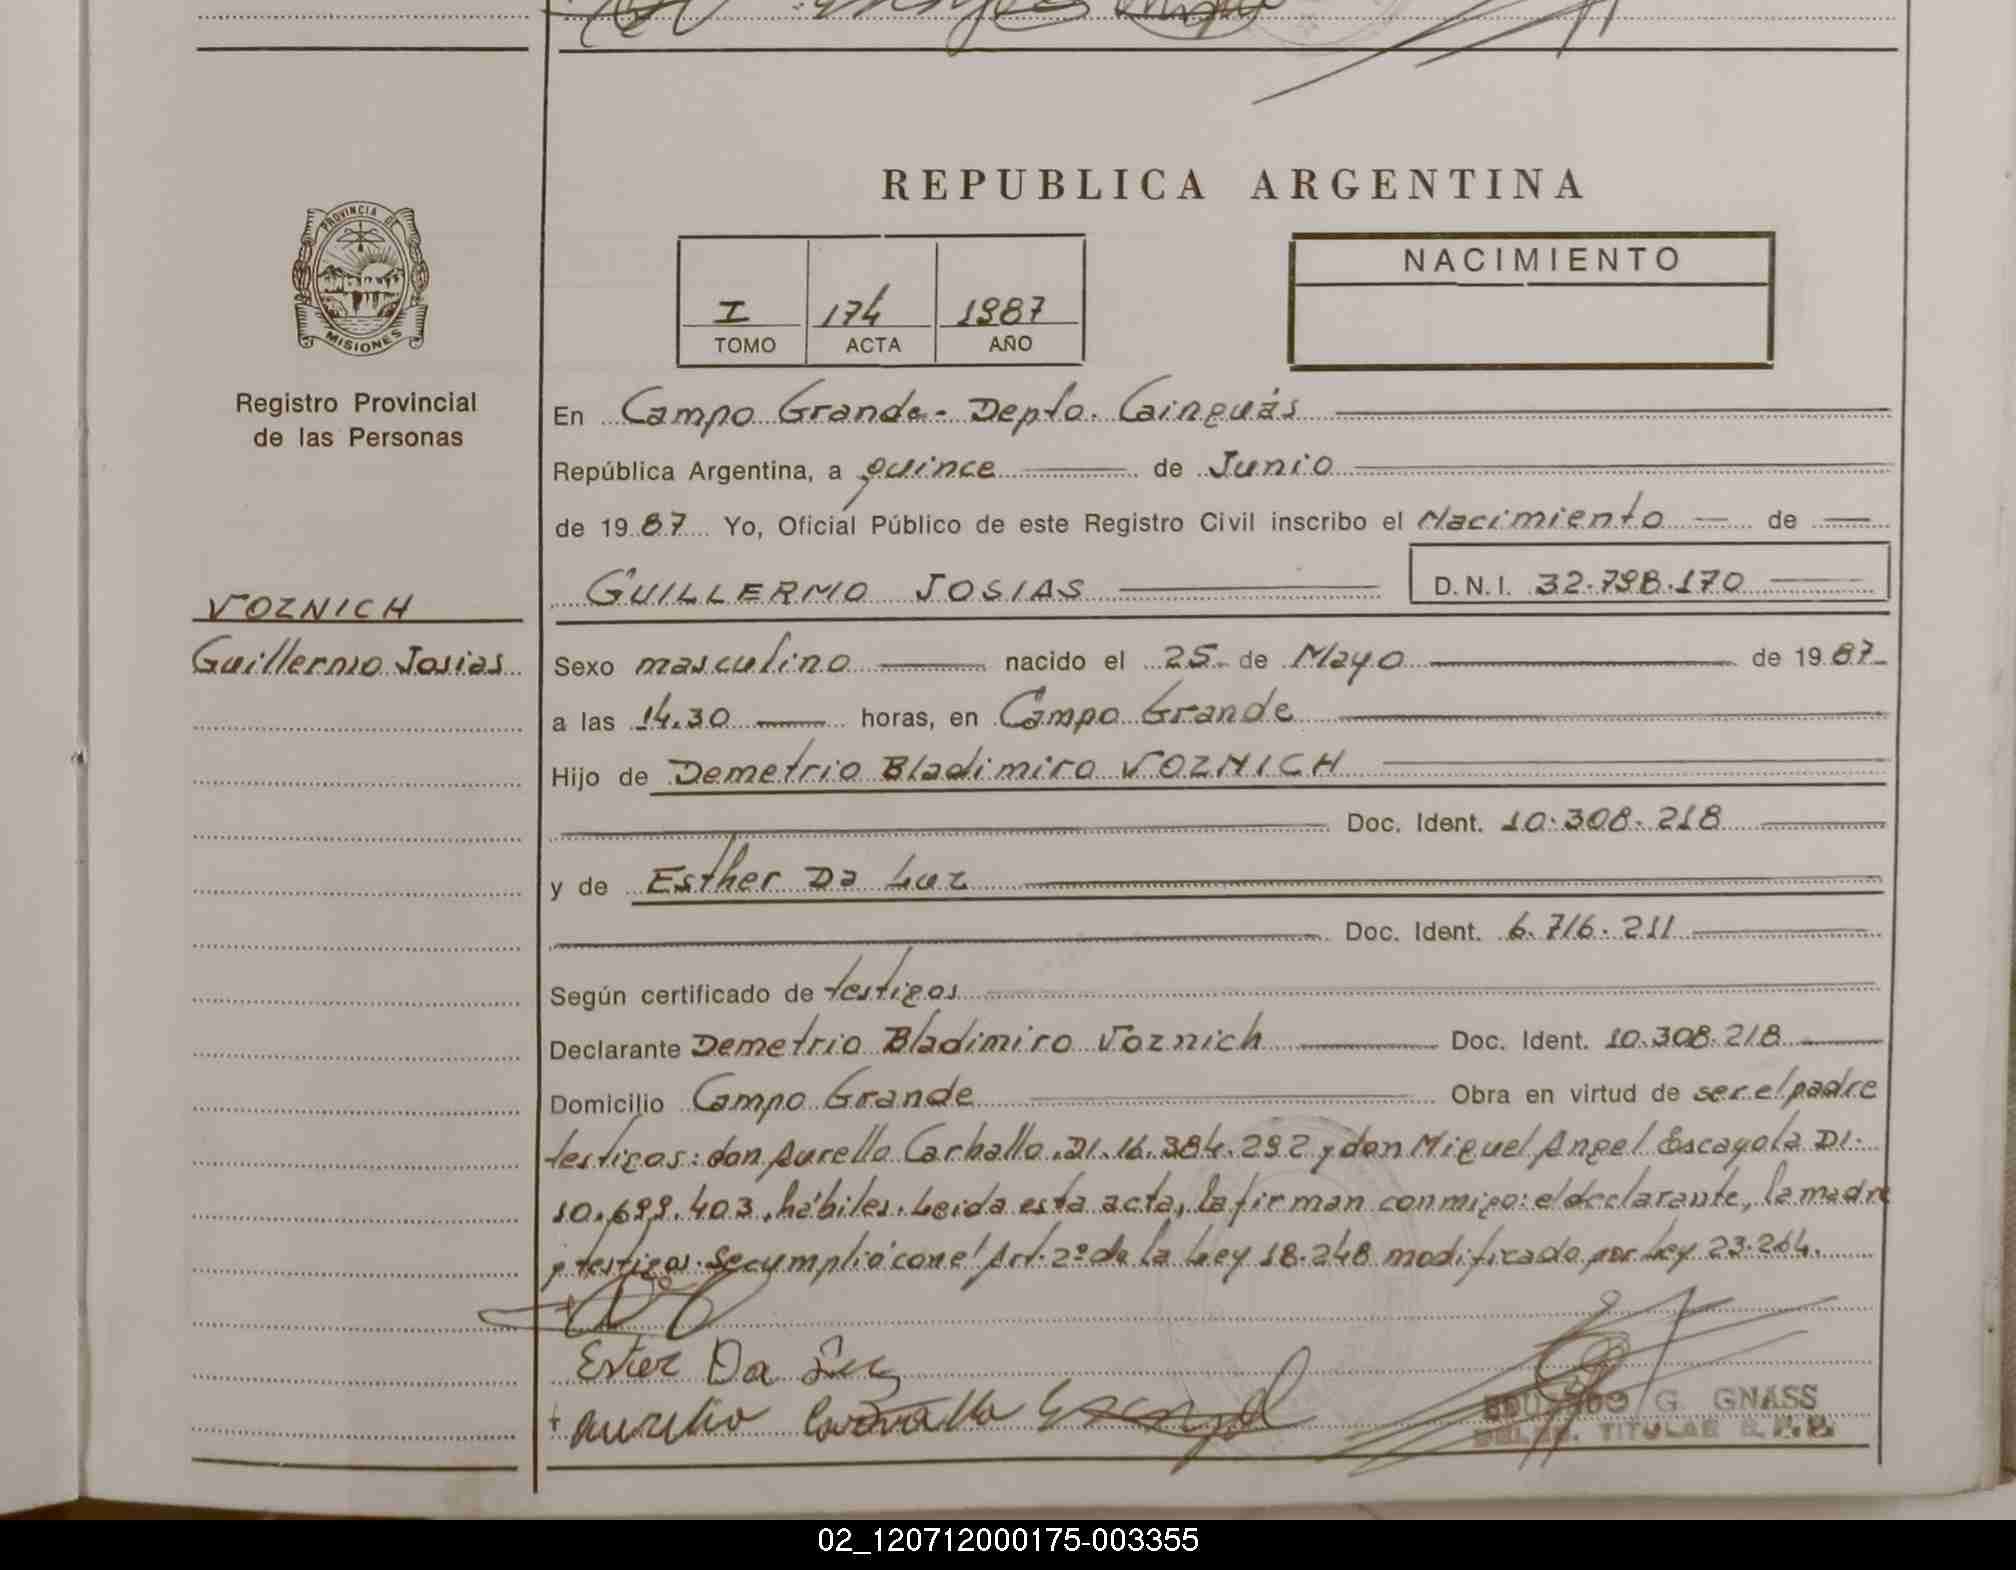 REPUBLICA ARGENTINA
PROVINCIA DE
MISIONES
Registro Provincial
de las Personas
I 174 1987
TOMO ACTA AÑO
NACIMIENTO
En Campo Grande - Depto. Cainguás
República Argentina, a quince de Junio
de 1987 Yo, Oficial Público de este Registro Civil inscribo el Nacimiento de
GUILLERMO JOSIAS D.N.I. 32.798.170
VOZNICH
Guillermo Josias
Sexo masculino nacido el 25 de Mayo de 1987
a las 14.30 horas, en Campo Grande
Hijo de Demetrio Bladimiro VOZNICH
Doc. Ident. 10.308.218
y de Esther Da Luz
Doc. Ident. 6.716.211
Según certificado de testigos
Declarante Demetrio Bladimiro Voznich Doc. Ident. 10.308.218
Domicilio Campo Grande Obra en virtud de ser el padre
testigos: don Aurelio Carballo, DI. 16.384.292 y don Miguel Angel Escayola DI.
10.699.403, hábiles. Leida esta acta, la firman conmigo: el declarante, la madre
y testigos. Se cumplió con el Art. 2º de la Ley 18.248 modificado por Ley 23.264.
Ester Da Luz
Aurelio
EDUARDO G. GNASS
DELEG. TITULAR R.P.P.
02_120712000175-003355